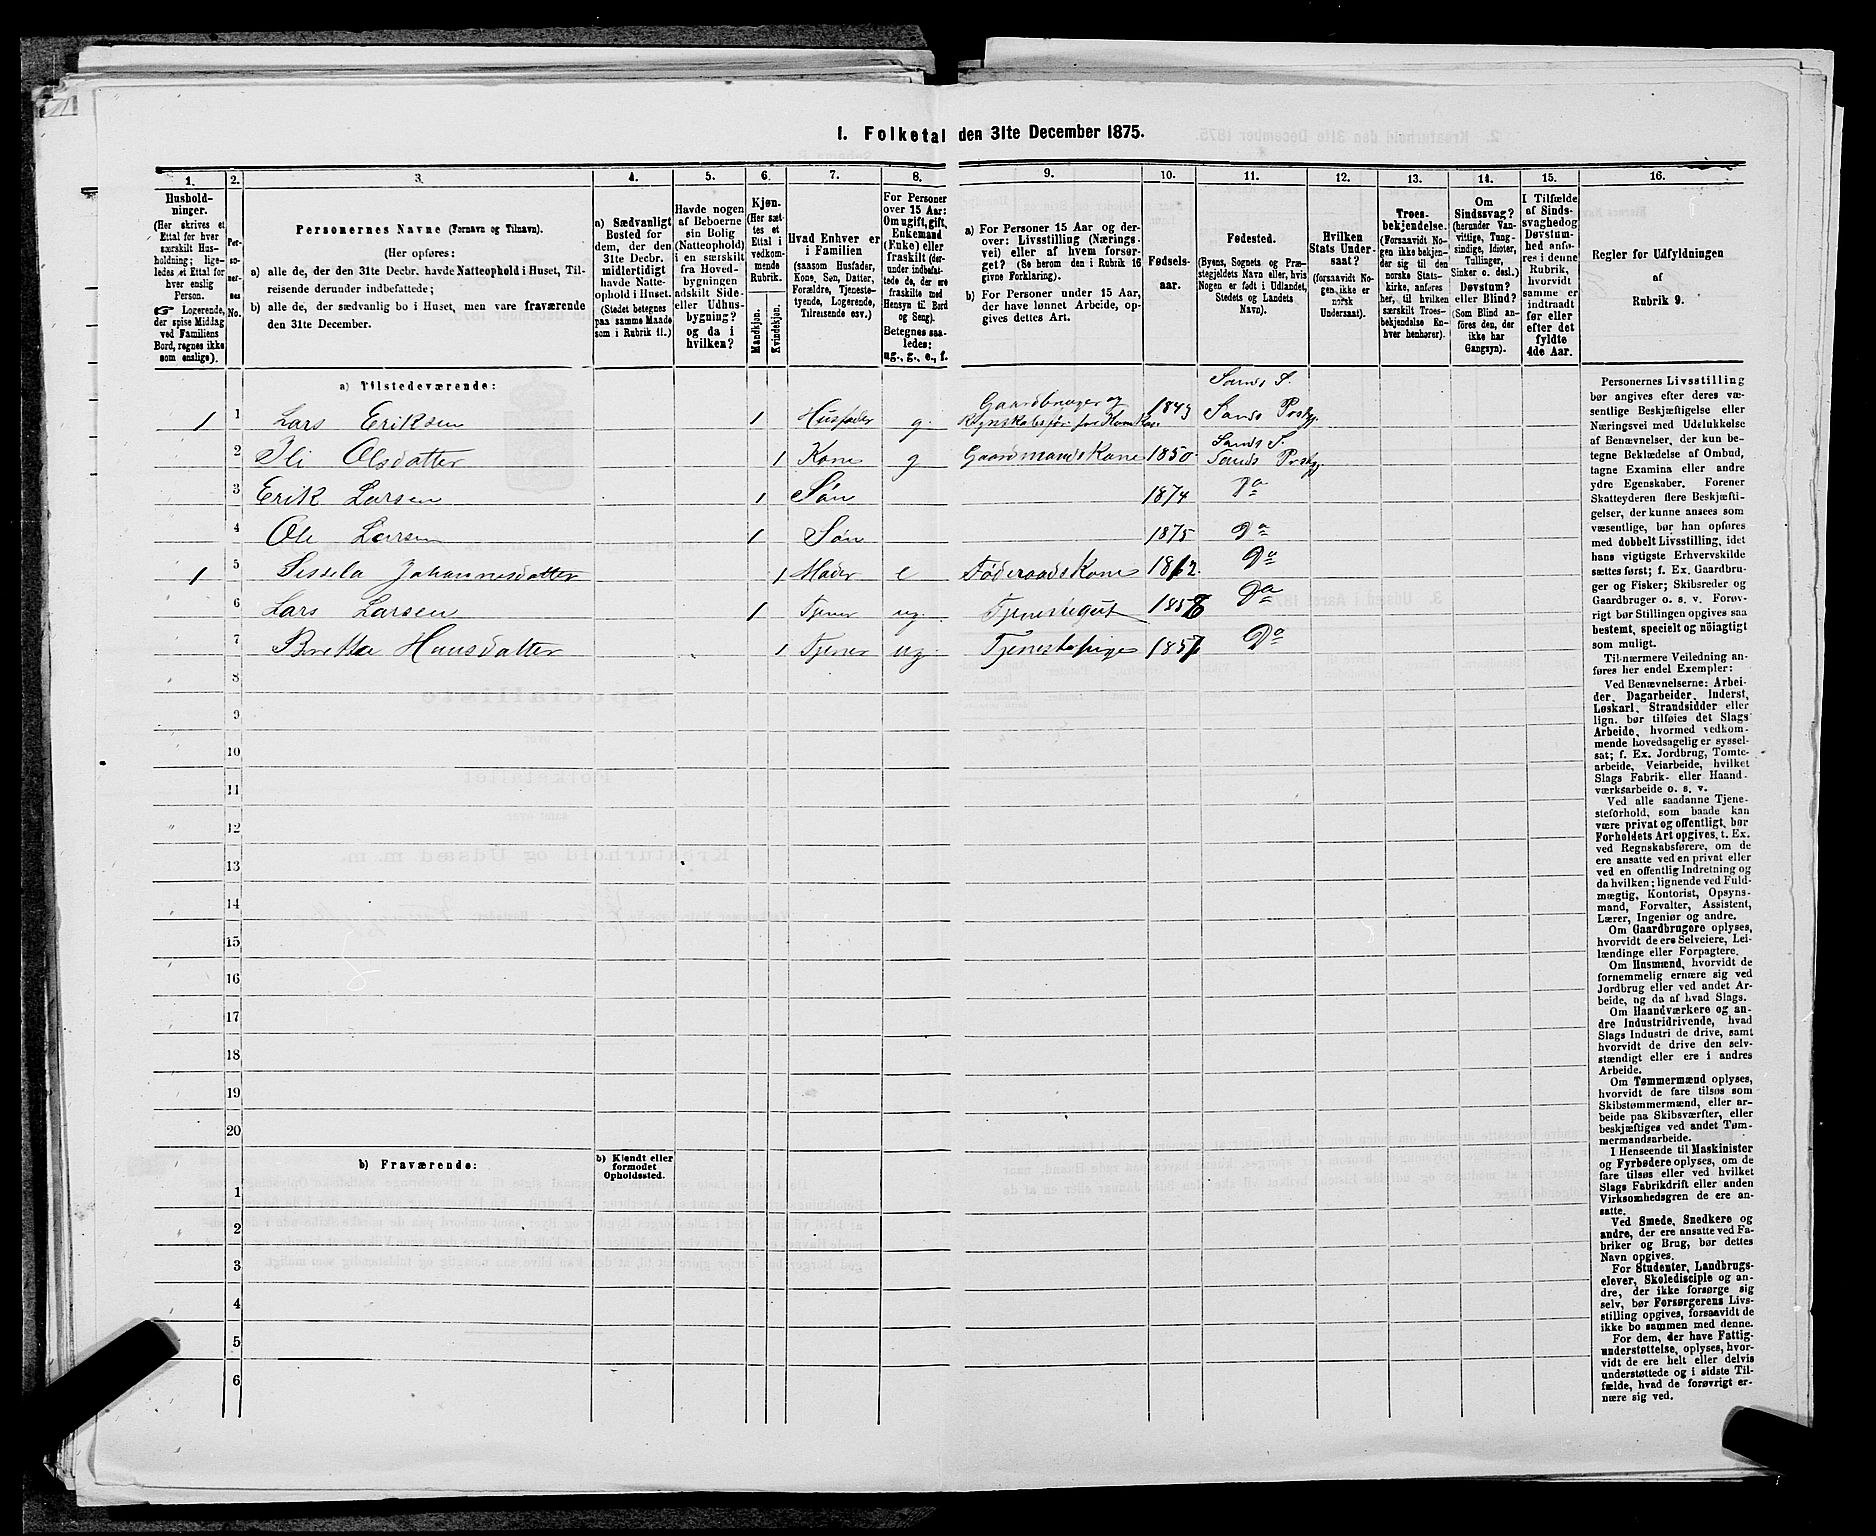 1. Folketal den 31te December 1875.
1. 2. 3. 4. 5. 6. 7. 8. 9. 10. 11. 12. 13. 14. 15. 16.
Hushold-
ninger.
(Her skrives et
Ettal for hver
særskilt Hus-
holdning; lige-
ledes et Ettal for
hver enslig
Person.
☞ Logerende,
der spise Middag
ved Familiens
Bord, regnes ikke
som enslige).
Per-
so-
ner-
nes
No.
Personernes Navne (Fornavn og Tilnavn).
(Her opføres:
a) alle de, der den 31te Decbr. havde Natteophold i Huset, Til-
reisende derunder indbefattede;
b) alle de, der sædvanlig bo i Huset, men vare fraværende
den 31te December.
a) Sædvanligt
Bosted for
dem, der den
31te Decbr.
midlertidigt
havde Natte-
ophold i Huset.
(Stedet betegnes
paa samme Maade
som i Rubrik 11.)
Havde nogen
af Beboerne
sin Bolig
(Natteophold)
i en særskilt
fra Hoved-
bygningen
adskilt Side-
eller Udhus-
bygning?
og da i
hvilken?
Kjøn.
(Her sæt-
tes et
Ettal i
vedkom-
mende
Rubrik.
Mandkjøn.
Kvindekjøn.
Hvad Enhver er
i Familien
(saasom Husfader,
Kone, Søn, Datter,
Forældre, Tjeneste-
tyende, Logerende,
Tilreisende osv.)
For Personer
over 15 Aar:
Om ugift, gift,
Enkemand
(Enke) eller
fraskilt (der-
under indbefat-
tede de, der ere
fraskilte med
Hensyn til Bord
og Seng).
Betegnes saa-
ledes:
ug., g., e., f.
a) For Personer 15 Aar og der-
over: Livsstilling (Nærings-
vei) eller af hvem forsør-
get? (Se herom den i Rubrik 16
givne Forklaring).
b) For Personer under 15 Aar,
der have lønnet Arbeide, op-
gives dettes Art.
Fødsels-
aar.
Fødested.
(Byens, Sognets og Præ-
stegjeldets Navn eller, hvis
Nogen er født i Udlandet,
Stedets og Landets
Navn).
Hvilken
Stats Under-
saat?
(forsaavidt No-
gen ikke er
norsk
Undersaat).
Troes-
bekjendelse.
(Forsaavidt No-
gen ikke bekjen-
der sig til den
norske Stats-
kirke, anføres
her, til hvilken
særskilt Troes-
bekjendelse En-
hver henhører).
Om
Sindssvag?
(herunder Van-
vittige, Tung-
sindige, Idioter,
Tullinger,
Sinker o. desl.)
Døvstum?
eller Blind?
(Som Blind an-
føres den, der
ikke har
Gangsyn).
I Tilfælde
af Sinds-
svaghed og
Døvstum-
hed anfø-
res i denne
Rubrik,
hvorvidt
samme er
indtraadt
før eller
efter det
fyldte
4de Aar.
Regler for Udfyldningen
af
Rubrik 9.
a) Tilstedeværende:
1 1 Lars Eriksen 1 Husfader g. Gaardbruger og Regnskabsfør. for Kom 1843 Sands S. Sands Prstgj.
2 Ili Olsdatter 1 Kone g Gaardmands Kone 1850 Sands S. Sands Prstgj
3 Erik Larsen 1 Søn 1874 Do
4 Ole Larsen 1 Søn 1875 Do
1 5 Sissela Johannesdatter 1 Moder e Föderaads Kone 1812. Do
6 Lars Larsen 1 Tjener ug. Tjenestgut Do
7 Bretta Hansdatter 1 Tjener ug. Tjenestepige Do
8
9
10
11
12
13
14
15
16
17
18
19
20
b) Fraværende:
b) Kjendt eller
formodet
Opholdssted.
1
2
3
4
5
6
Personernes Livsstilling
bør angives efter deres væ-
sentlige Beskjæftigelse eller
Næringsvei med Udelukkelse
af Benævnelser, der kun be-
tegne Beklædelse af Ombud,
tagne Examina eller andre
ydre Egenskaber. Forener
Skatteyderen flere Beskjæfti-
gelser, der kunne ansees som
væsentlige, bør han opføres
med dobbelt Livsstilling, idet
hans vigtigste Erhvervskilde
sættes først; f. Ex. Gaardbru-
ger og Fisker; Skibsreder og
Gaardbruger o. s. v. Forøv-
rigt bør Stillingen opgives saa
bestemt, specielt og nöiagtigt
som muligt.
Til nærmere Veiledning an-
føres her endel Exempler:
Ved Benævnelserne: Arbei-
der, Dagarbeider, Inderst,
Løskarl, Strandsidder eller
lign. bør tilføies det Slags
Arbeide, hvormed vedkom-
mende hovedsagelig er syssel-
sat; f. Ex. Jordbrug, Tomte-
arbeide, Veiarbeide, hvilket
Slags Fabrik- eller Haand-
værksarbeide o. s. v.
Ved alle saadanne Tjene-
steforhold, som baade kan
være privat og offentligt, bør
Forholdets Art opgives, t. Ex.
ved Regnskabsførere, om de
ere ansatte ved en privat eller
ved en offentlig Indretning og
da hvilken; lignende ved Fuld-
mægtig, Kontorist, Opsyns-
mand, Forvalter, Assistent,
Lærer, Ingeniør og andre.
Om Gaardbrugere oplyses,
hvorvidt de ere Selveiere, Lei-
lændinge eller Forpagtere.
Om Husmænd, hvorvidt de
fornemmelig ernære sig ved
Jordbrug eller ved andet Ar-
beide, og da af hvad Slags.
Om Haandværkere og an-
dre Industridrivende, hvad
Slags Industri de drive, samt
hvorvidt de drive den selv-
stændigt eller ere i andres
Arbeide.
Om Tømmermænd oplyses,
hvorvidt de fare tilsøs som
Skibstømmermænd, eller ar-
beide paa Skibsværfter, eller
beskjæftiges ved andet Tøm-
mermandsarbeide.
I Henseende til Maskinister
og Fyrbødere oplyses, om de
fare tilsøs eller ved hvilket
Slags Fabrikdrift eller anden
Virksomhedsgren de ere an-
satte.
Ved Smede, Snedkere og
andre, der ere ansatte ved Fa-
briker og Brug, bør dettes
Navn opgives.
For Studenter, Landbrugs-
elever, Skoledisciple og an-
dre, der ikke forsørge sig
selv, bør Forsørgerens Livs-
stilling opgives, forsaavidt de
ikke bo sammen med denne.
For dem, der have Fattig-
understøttelse, oplyses, hvor-
vidt de ere helt eller delvis
understøttede og i sidste Til-
fælde, hvad de forøvrigt er-
nære sig ved.